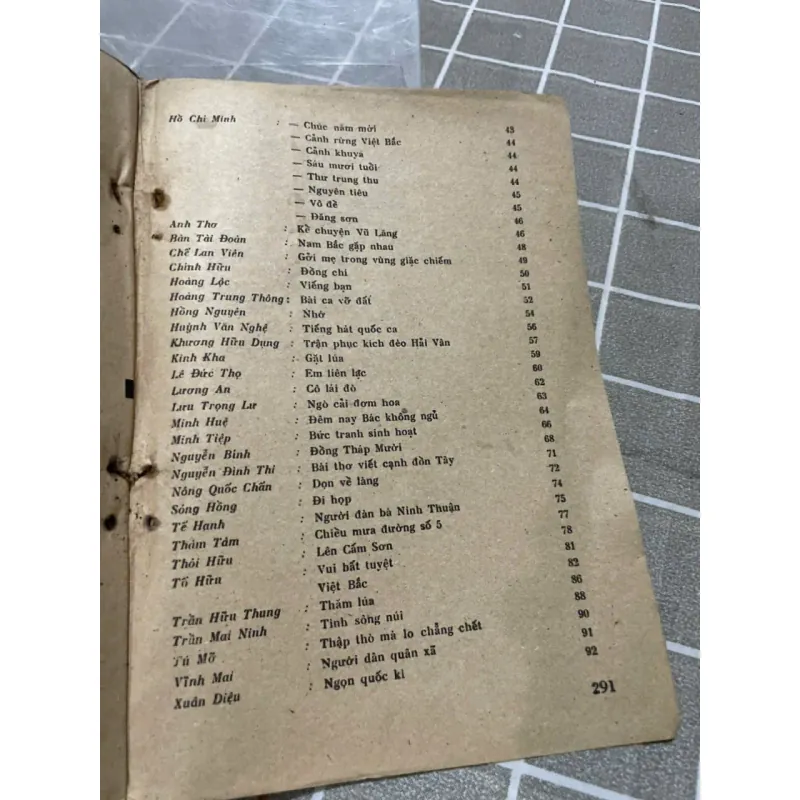 Hồ Chí Minh : — Chúc năm mới 43
— Cảnh rừng Việt Bắc 44
— Cảnh khuya 44
— Sáu mươi tuổi 44
— Thư trung thu 44
— Nguyên tiêu 45
— Vô đề 45
— Đăng sơn 46
Anh Thơ : Kể chuyện Vũ Lăng 46
Bàn Tài Đoàn : Nam Bắc gặp nhau 48
Chế Lan Viên : Gởi mẹ trong vùng giặc chiếm 49
Chính Hữu : Đồng chí 50
Hoàng Lộc : Viếng bạn 51
Hoàng Trung Thông : Bài ca vỡ đất 52
Hồng Nguyên : Nhớ 54
Huỳnh Văn Nghệ : Tiếng hát quốc ca 56
Khương Hữu Dụng : Trận phục kích đèo Hải Vân 57
Kinh Kha : Gặt lúa 59
Lê Đức Thọ : Em liên lạc 60
Lương An : Cô lái đò 62
Lưu Trọng Lư : Ngò cải đơm hoa 63
Minh Huệ : Đêm nay Bác không ngủ 64
Minh Tiệp : Bức tranh sinh hoạt 66
Nguyễn Bính : Đồng Tháp Mười 68
Nguyễn Đình Thi : Bài thơ viết cạnh đồn Tây 71
Nông Quốc Chấn : Dọn về làng 72
Sóng Hồng : Đi họp 74
Tế Hanh : Người đàn bà Ninh Thuận 75
Thâm Tâm : Chiều mưa đường số 5 77
Thôi Hữu : Lên Cấm Sơn 78
Tố Hữu : Vui bất tuyệt 81
Việt Bắc 82
Trần Hữu Thung : Thăm lúa 86
Trần Mai Ninh : Tình sông núi 88
Tú Mỡ : Thập thò mà lo chẳng chết 90
Vĩnh Mai : Người dân quân xã 91
Xuân Diệu : Ngọn quốc kì 92
291